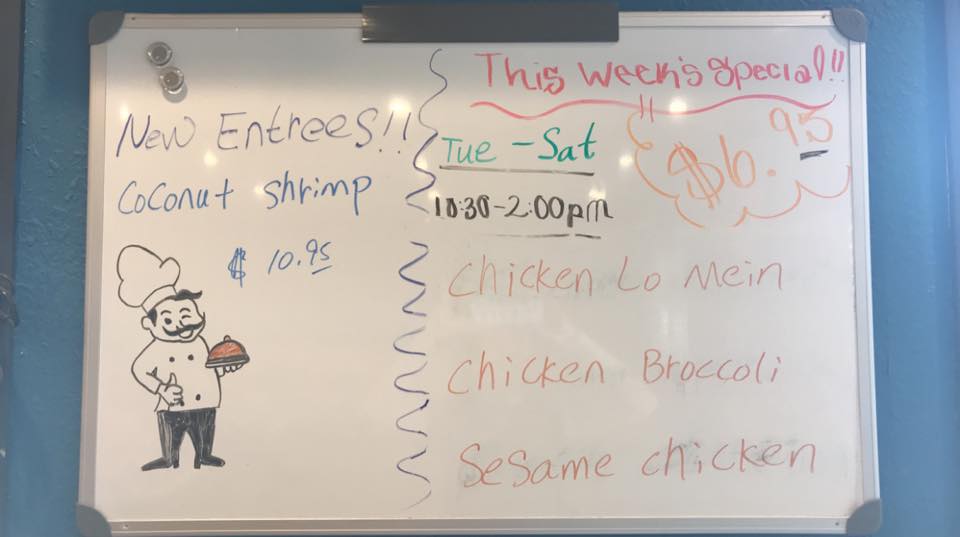 New Entrees!!
Coconut shrimp
$ 10.95
This Week's Special!!
$6.95
Tue - Sat
10:30-2:00pm
Chicken Lo Mein
Chicken Broccoli
Sesame chicken